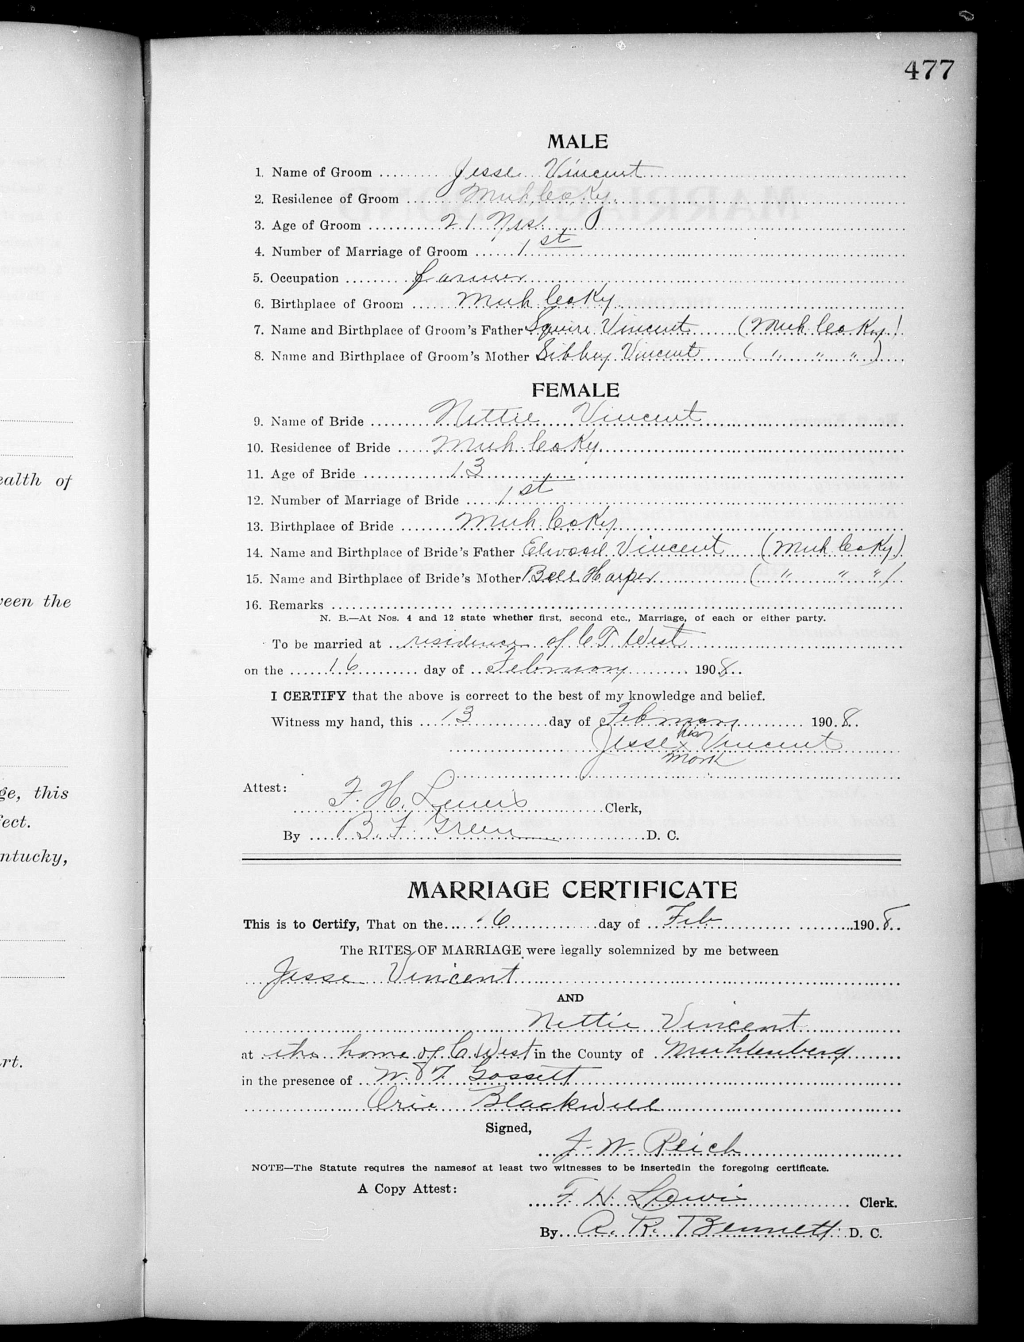 477
MALE
1. Name of Groom Jesse Vincent
2. Residence of Groom Muh Co Ky
3. Age of Groom 21 Yrs
4. Number of Marriage of Groom 1st
5. Occupation farmer
6. Birthplace of Groom Muh Co Ky
7. Name and Birthplace of Groom's Father Squire Vincent (Muh Co Ky)
8. Name and Birthplace of Groom's Mother Sibbey Vincent ( " " " )
FEMALE
9. Name of Bride Nettie Vincent
10. Residence of Bride Muh Co Ky
11. Age of Bride 13
12. Number of Marriage of Bride 1st
13. Birthplace of Bride Muh Co Ky
14. Name and Birthplace of Bride's Father Vincent (Muh Co Ky)
15. Name and Birthplace of Bride's Mother Bell Harper ( " " " )
16. Remarks
N. B.—At Nos. 4 and 12 state whether first, second etc., Marriage, of each or either party.
To be married at residence of C T West
on the 16 day of February 1908
I CERTIFY that the above is correct to the best of my knowledge and belief.
Witness my hand, this 13 day of February 1908.
his
Jesse x Vincent
mark
Attest:
F. H. Lewis Clerk,
By B. F. Green D. C.
MARRIAGE CERTIFICATE
This is to Certify, That on the 16 day of Feb 1908.
The RITES OF MARRIAGE were legally solemnized by me between
Jesse Vincent
AND
Nettie Vincent
at the home of C West in the County of Muhlenberg
in the presence of Gossett
Orie Blackwell
Signed,
J. W. Reich
NOTE—The Statute requires the namesof at least two witnesses to be insertedin the foregoing certificate.
A Copy Attest:
F H Lewis Clerk.
By A. R. Bennett D. C.
ealth of
veen the
ge, this
fect.
ntucky,
rt.